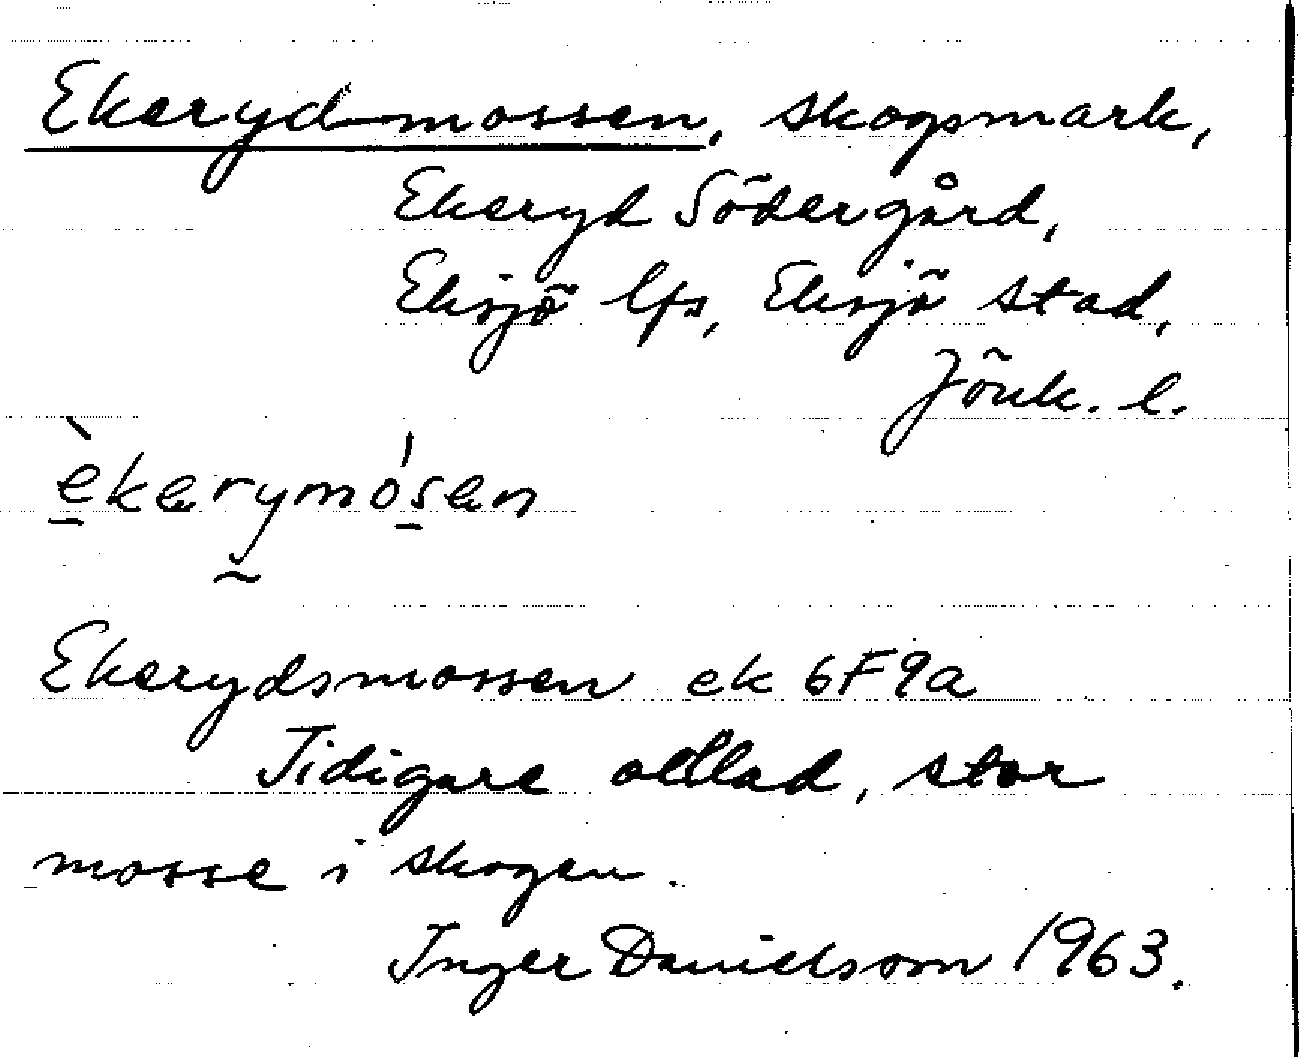 Ekerydmossen, skogsmark,
Ekeryd Södergård,
Eksjö lfs, Eksjö stad,
Jönk. l.
èkerymósen
Ekerydsmossen ek 6F9a
Tidigare odlad, stor
mosse i skogen.
Inger Danielsson 1963.